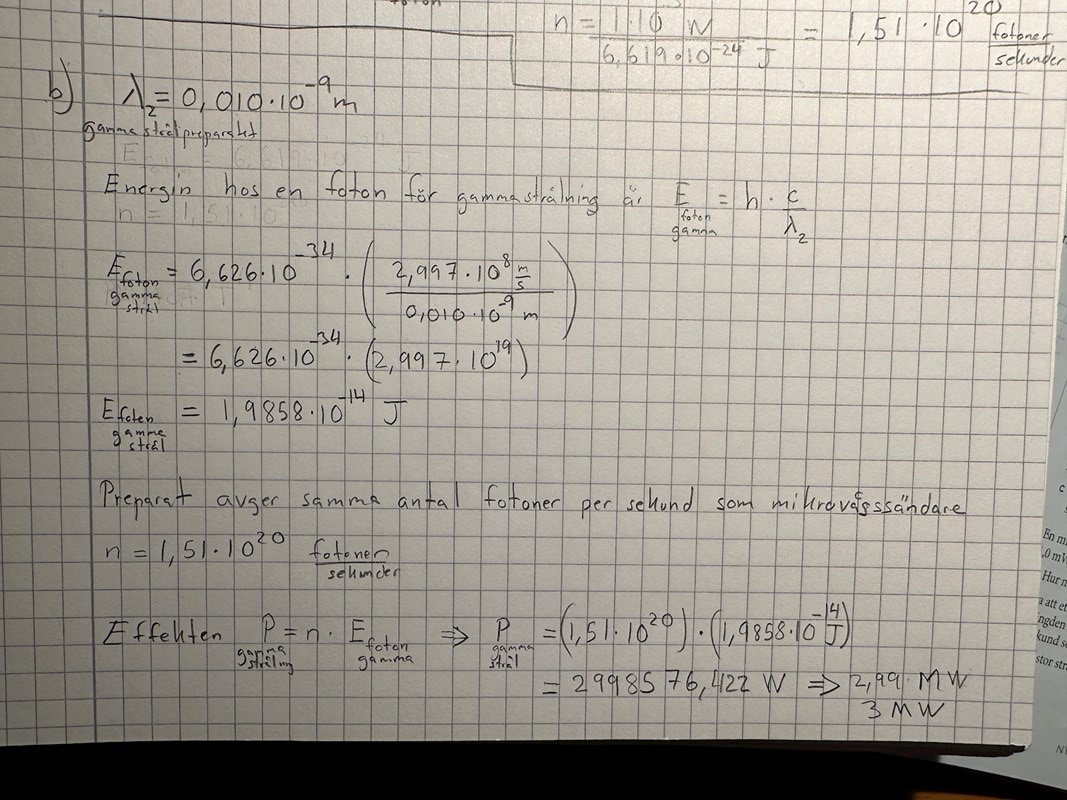 n = 1·10 W / 6,619·10⁻²⁴ J = 1,51·10²⁰ fotoner/sekunder
b) λ₂ = 0,010·10⁻⁹ m
gammastrålpreparatet
Energin hos en foton för gammastrålning är E foton gamma = h · c/λ₂
E foton gamma strål = 6,626·10⁻³⁴ · (2,997·10⁸ m/s / 0,010·10⁻⁹ m)
= 6,626·10⁻³⁴ · (2,997·10¹⁹)
E foton gamma strål = 1,9858·10⁻¹⁴ J
Preparat avger samma antal fotoner per sekund som mikrovågssändare
n = 1,51·10²⁰ fotoner/sekunder
Effekten P gamma strålning = n · E foton gamma ⇒ P gamma strål = (1,51·10²⁰) · (1,9858·10⁻¹⁴ J)
= 2998576,422 W ⇒ 2,99 MW
3 MW
En m
,0 mW
Hur m
a att et
ngden
kund s
stor str